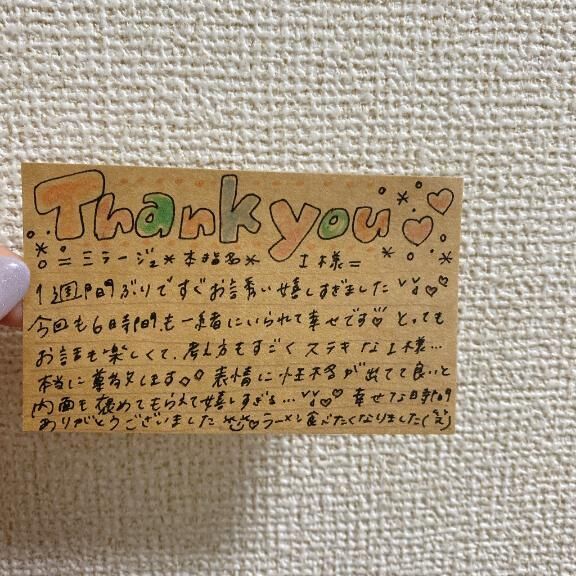 Thank you
=ミラージュ*本指名* I様=
1週間ぶりですぐお誘い嬉しすぎました
今回も6時間も一緒にいられて幸せです♡とっても
お話も楽しくて、考え方もすごくステキなI様…
本当に尊敬します 表情に性格が出てて良いと
内面も褒めてもらえて嬉しすぎる…♡ 幸せな時間
ありがとうございました ラーメン食べたくなりました(笑)